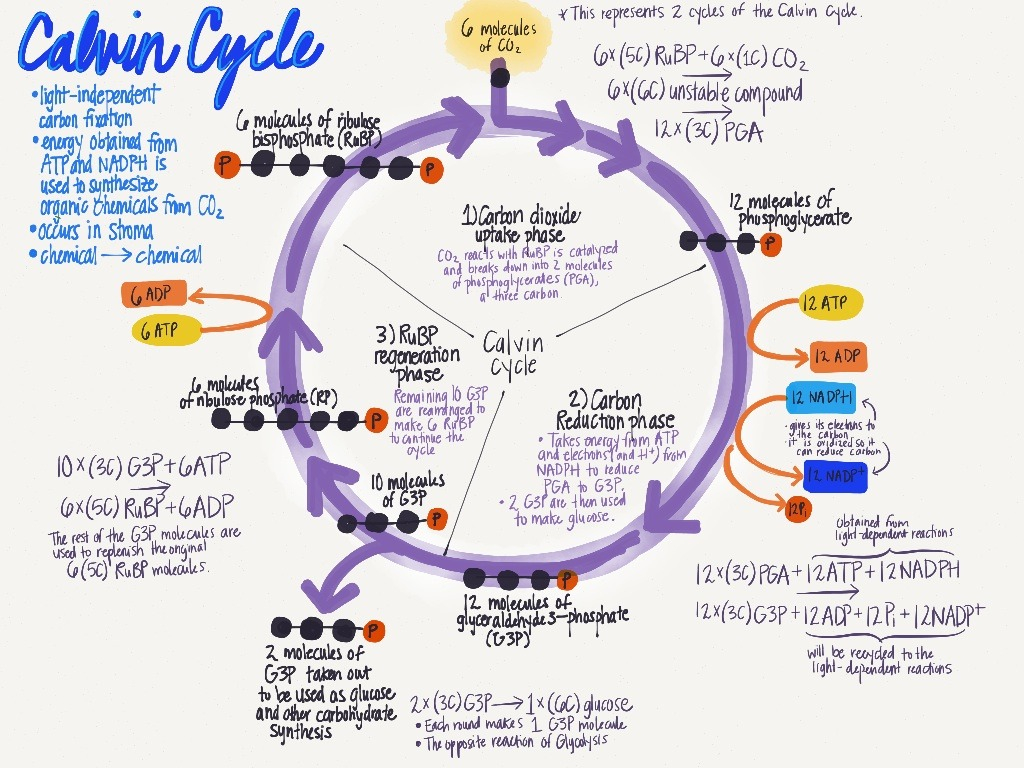 Calvin Cycle
• light-independent
carbon fixation
• energy obtained from
ATP and NADPH is
used to synthesize
organic chemicals from CO₂
• occurs in stroma
• chemical → chemical
6 molecules
of CO₂
* This represents 2 cycles of the Calvin Cycle.
6×(5C) RuBP + 6×(1C) CO₂
→
6×(6C) unstable compound
→
12×(3C) PGA
6 molecules of ribulose
bisphosphate (RuBP)
P P
12 molecules of
phosphoglycerate
P
1) Carbon dioxide
uptake phase
CO₂ reacts with RuBP is catalyzed
and breaks down into 2 molecules
of phosphoglycerates (PGA),
a three carbon.
6 ADP
6 ATP
12 ATP
12 ADP
12 NADPH
• gives its electrons to
the carbon
• it is oxidized so it
can reduce carbon
12 NADP⁺
12Pi
Calvin
cycle
3) RuBP
regeneration
phase
Remaining 10 G3P
are rearranged to
make 6 RuBP
to continue the
cycle
2) Carbon
Reduction phase
• Takes energy from ATP
and electrons (and H⁺) from
NADPH to reduce
PGA to G3P.
• 2 G3P are then used
to make glucose.
6 molecules
of ribulose phosphate (RP)
P
10 molecules
of G3P
P
10×(3C) G3P + 6ATP
→
6×(5C) RuBP + 6ADP
The rest of the G3P molecules are
used to replenish the original
6(5C) RuBP molecules.
P
12 molecules of
glyceraldehyde 3-phosphate
(G3P)
Obtained from
light-dependent reactions
12×(3C) PGA + 12ATP + 12NADPH
→
12×(3C) G3P + 12ADP + 12Pi + 12NADP⁺
will be recycled to the
light-dependent reactions
P
2 molecules of
G3P taken out
to be used as glucose
and other carbohydrate
synthesis
2×(3C) G3P → 1×(6C) glucose
• Each round makes 1 G3P molecule
• The opposite reaction of Glycolysis